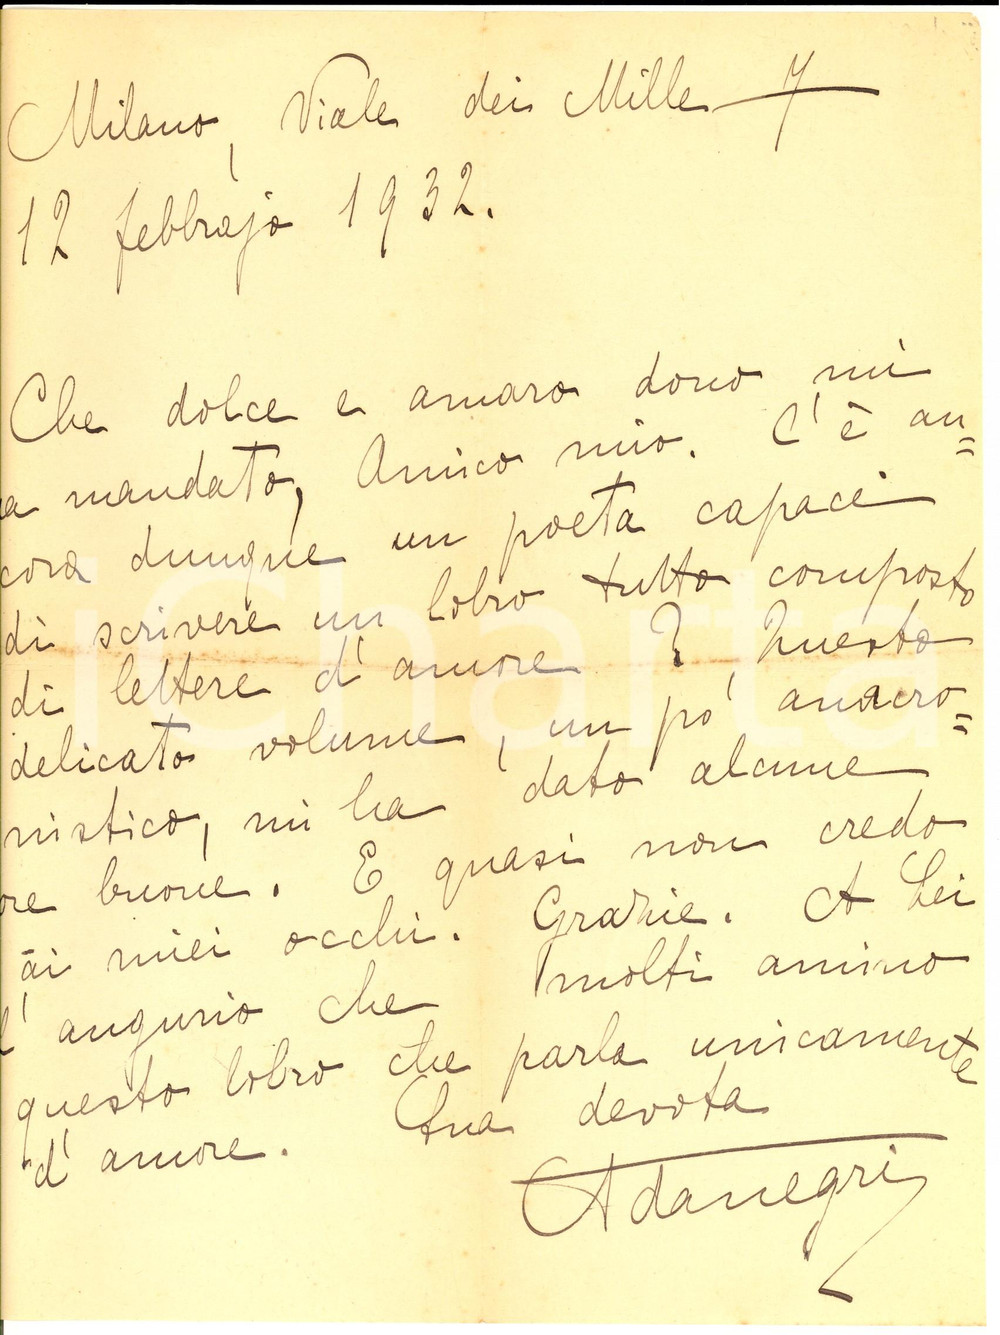 Milano, Viale dei Mille 7
12 febbrajo 1932.
Che dolce e amaro dono mi
ha mandato, Amico mio. C'è an=
cora dunque un poeta capace
di scrivere un libro tutto composto
di lettere d'amore? Questo
delicato volume, un po' anacro=
nistico, mi ha dato alcune
ore buone. E quasi non credo
ai miei occhi. Grazie. A Lei
l'augurio che molti amino
questo libro che parla unicamente
d'amore. Sua devota
Adanegri
iCharta